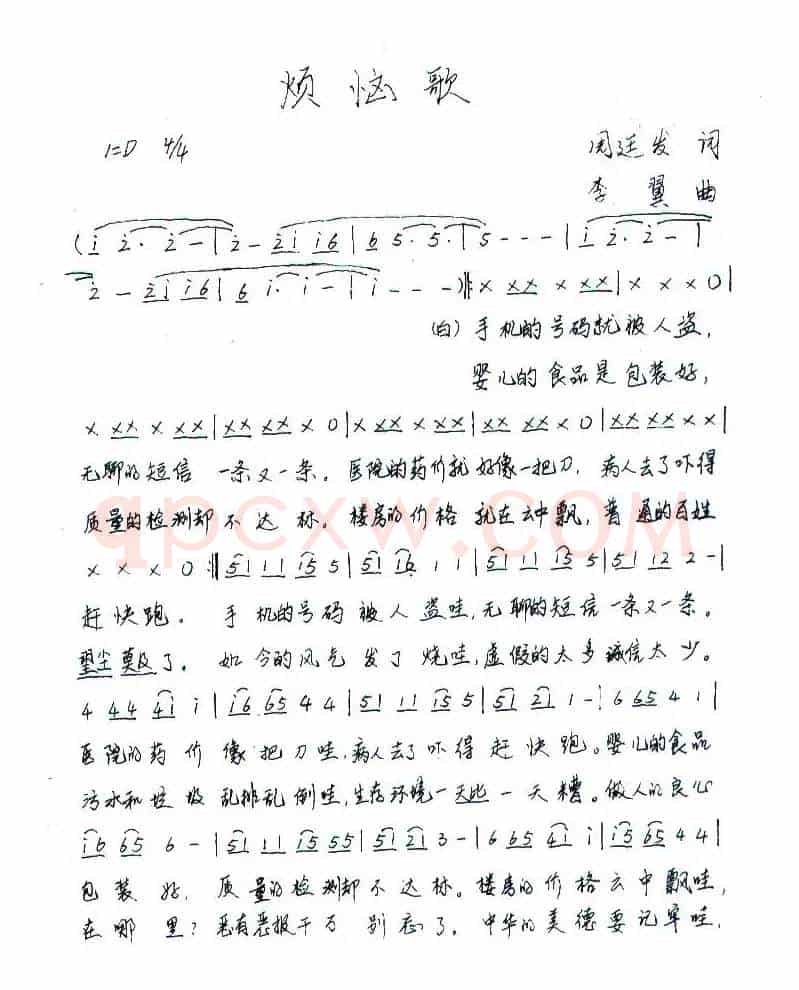 烦恼歌
1=D 4/4 周廷发 词
李翼 曲
(i 2· 2 - | 2 - 2i i6 | 6 5· 5· | 5 - - - | i 2· 2 - |
2 - 2i i6 | 6 i· i - | i - - - )‖: x xx x xx | x x x 0 |
(白) 手机的号码就被人盗,
婴儿的食品是包装好,
x xx x xx | xx xx x 0 | x xx x xx | xx xx x 0 | xx xx x x |
无聊的短信 一条又一条。 医院的药价就好像一把刀, 病人去了吓得
质量的检测却不达标。 楼房的价格就在云中飘, 普通的百姓
qpcxw.com
x x x 0 :‖ 51 11 15 5 | 51 12 1 1 | 51 11 15 5 | 51 12 2 - |
赶快跑。 手机的号码被人盗哇, 无聊的短信一条又一条。
望尘莫及了。 如今的风气发了烧哇, 虚假的太多诚信太少。
4 44 4i i | i6 65 4 4 | 51 11 15 5 | 51 21 1 - | 6 665 4 1 |
医院的药价像把刀哇, 病人去了吓得赶快跑。 婴儿的食品
污水和垃圾乱排乱倒哇, 生存环境一天比一天糟。 做人的良心
i6 65 6 - | 51 11 15 55 | 51 21 3 - | 6 665 4i i | i5 65 4 4 |
包装好, 质量的检测却不达标。 楼房的价格云中飘哇,
在哪里? 恶有恶报千万别忘了。 中华的美德要记牢哇,